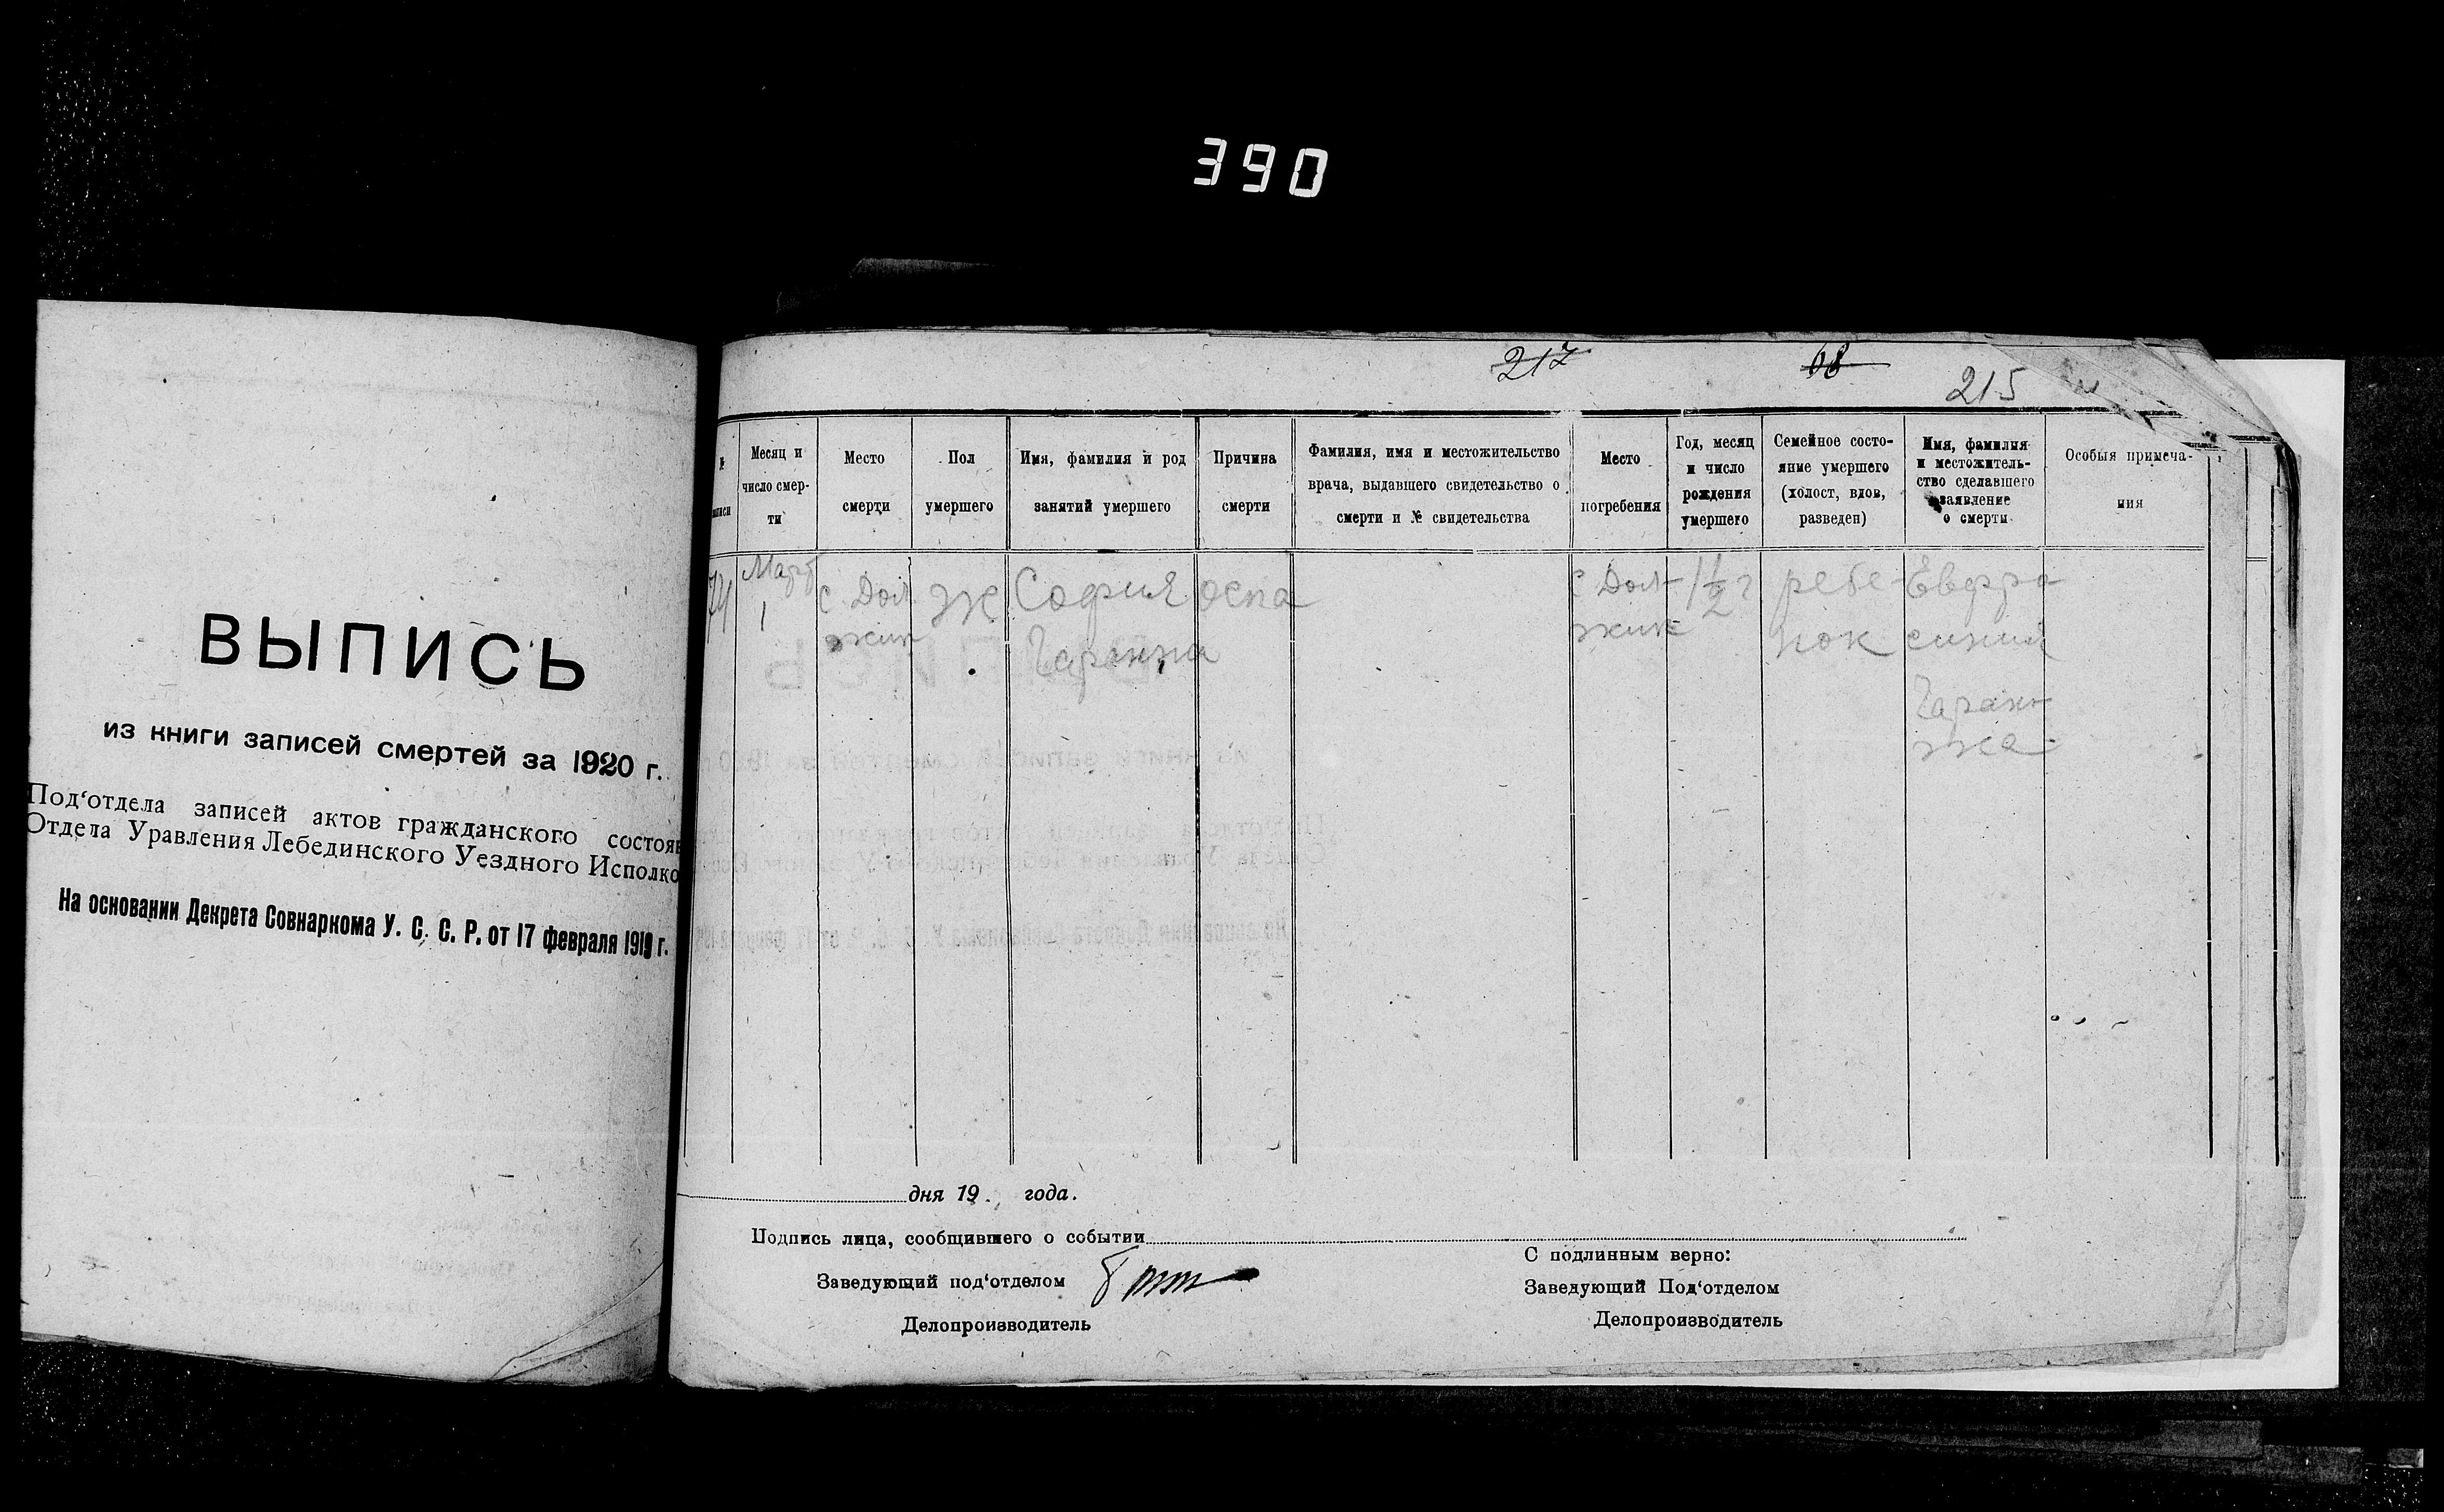 390
ВЫПИСЬ
из книги записей смертей за 1920 г.
Под‘отдела записей актов гражданского состоя
Отдела Уравления Лебединского Уездного Исполко
На основании Декрета Совнаркома У. С. С. Р. от 17 февраля 1919 г.
217
68
215
Месяц и число смерти
Место смерти
Пол умершего
Имя, фамилия и род занятий умершего
Причина смерти
Фамилия, имя и местожительство врача, выдавшего свидетельство о смерти и № свидетельства
Место погребения
Год, месяц и число рождения умершего
Семейное состояние умершего (холост, вдов, разведен)
Имя, фамилия и местожительство сделавшего заявление о смерти
Особыя примечания
74
Март
1
с. Дол
жик
ж
София
оспа
с Дол
жик
1 1/2 г
ребе
нок
Евфра
синий
дня 19 года.
Подпись лица, сообщившего о событии
Заведующий под‘отделом
Делопроизводитель
С подлинным верно:
Заведующий Под‘отделом
Делопроизводитель